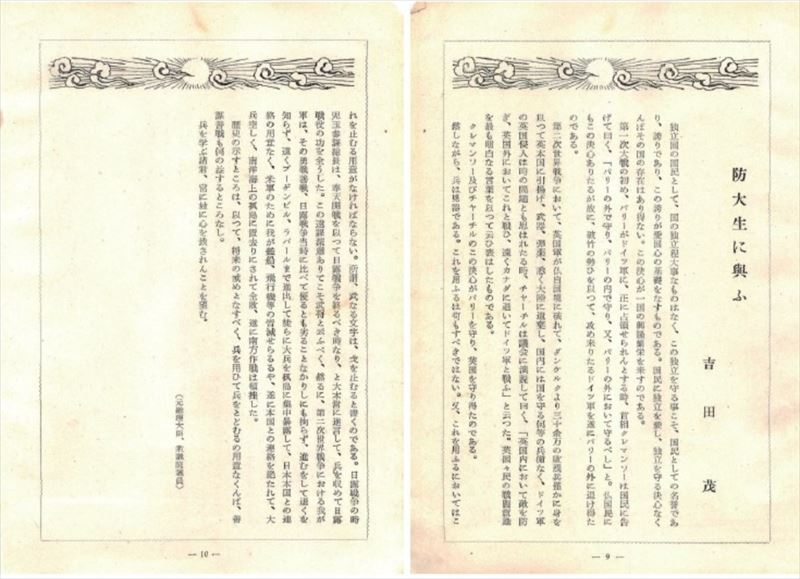 防大生に與ふ
吉田茂
独立国の国民として、国の独立程大事なものはなく、この独立を守る事こそ、国民としての名誉であ
り、誇りであり、この誇りが愛国心の基礎をなすものである。国民に独立を愛し、独立を守る決心なく
んばその国の存在はあり得ない。この決心が一国の興隆繁栄を来すのである。
第一次大戦の初め、パリーがドイツ軍に、正に占領せられんとする時、首相クレマンソーは国民に告
げて曰く、「パリーの外で守り、パリーの内で守り、又、パリーの外において守るべし」と。仏国民に
もこの決心ありたるが故に、破竹の勢ひを以つて、攻め来りたるドイツ軍を遂にパリーの外に退け得た
のである。
第二次世界戦争において、英国軍が仏白国境に破れて、ダンケルクより三十余万の敗残兵僅かに身を
以つて英本国に引揚げ、武器、弾薬、悉く大陸に遺棄し、国内には国を守る何等の兵備なく、ドイツ軍
の英国侵入は時の問題とも思はれたる時、チャーチルは議会に演説して曰く、「英国内において敵を防
ぎ、英国外においてこれと戦ひ、遠くカナダに退いてドイツ軍と戦ふ」と云つた。英国々民の戦闘意識
を最も明白なる言葉を以つて云ひ表はしたものである。
クレマンソー及びチャーチルのこの決心がパリーを守り、英国を守り得たのである。
然しながら、兵は兇器である。これを用ふるは苟もすべきではない。又、これを用ふるにおいてはこ
— 9 —
れを止むる用意がなければならない。所謂、武なる文字は、戈を止むると書くのである。日露戦争の時
児玉参謀総長は、奉天開戦を以つて日露戦争を終るべき時なり、と大本営に進言して、兵を収めて日露
戦役の功を全うした。この遠謀深慮ありてこそ武将と云ふべく、然るに、第二次世界戦争における我が
軍は、その勇戦善戦、日露戦争当時に比べて優るとも劣ることなかりしにも拘らず、進むをして退くを
知らず、遠くブーゲンビル、ラバールまで進出して徒らに大兵を孤島に集中暴露して、日本本国との連
絡の用意なく、米軍のために我が艦船、飛行機等の皆滅せらるるや、遂に本国との連絡を絶たれて、大
兵空しく、南洋海上の孤島に置去りにされて全敗、遂に南方作戦は頓挫した。
歴史の示すところは、以つて、将来の戒めとなすべく、兵を用ひて兵をとどむるの用意なくんば、善
謀善戦も何の益するところなし。
兵を学ぶ諸君、常に玆に心を致されんことを望む。
(元総理大臣、衆議院議員)
— 10 —